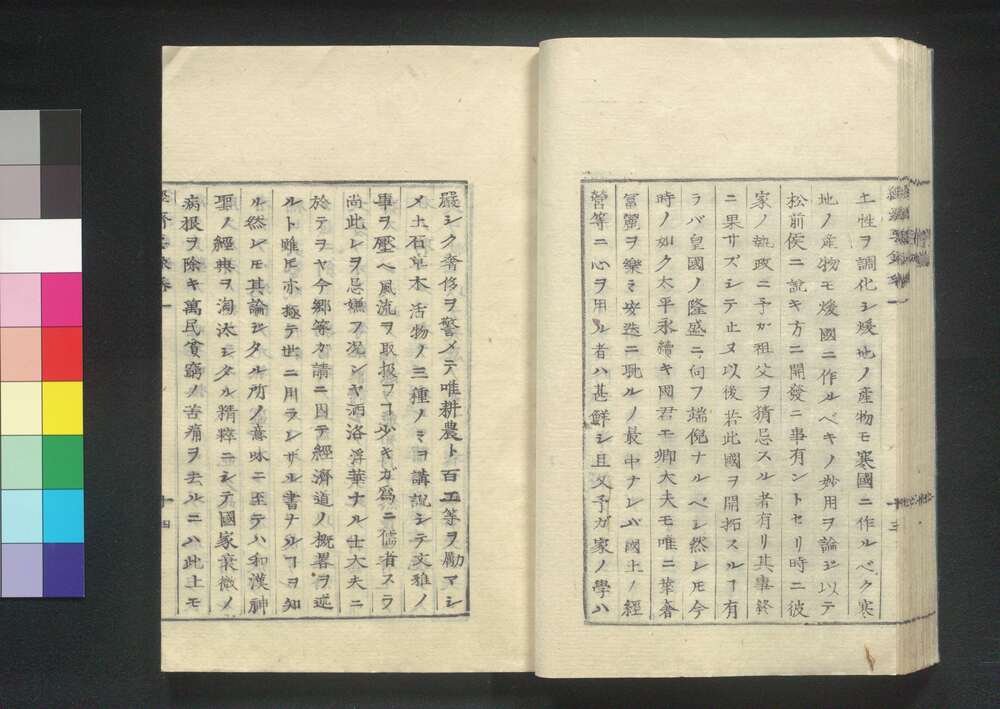 土性ヲ調化シ煖地ノ産物モ寒國ニ作ルベク寒
地ノ産物モ煖國ニ作ルベキノ妙用ヲ論ジ以テ
松前侯ニ說キ方ニ開發ニ事有ントセリ時ニ彼
家ノ執政ニ予ガ祖父ヲ猜忌スル者有リ其事終
ニ果サズシテ止ヌ以後若此國ヲ開拓スルヿ有
ラバ皇國ノ隆盛ニ向フ端倪ナルベシ然レモ今
時ノ如ク太平永續キ國君モ卿大夫モ唯ニ華奢
冨麗ヲ樂ミ安逸ニ耽ルノ最中ナレバ國土ノ經
營等ニ心ヲ用ル者ハ甚鮮シ且又予ガ家ノ學ハ
嚴シク奢侈ヲ警メテ唯耕農ト百工等ヲ勵マシ
メ土石草木活物ノ三種ノミヲ講說シテ文雅ノ
事ヲ壓ヘ風流ヲ取扱フヿ少キガ爲ニ儒者スラ
尚此レヲ忌嫌フ况ンヤ洒洛浮華ナル士大夫ニ
於テヲヤ今郷等ガ請ニ因テ經濟道ノ概畧ヲ述
ルト雖モ亦極テ世ニ用ラレザル書ナルヿヲ知
ル然レモ其論ジタル所ノ意味ニ至テハ和漢神
聖ノ經典ヲ淘汰シタル精粹ニシテ國家衰微ノ
病根ヲ除キ萬民貧窮ノ苦痛ヲ去ルニハ此上モ
十四